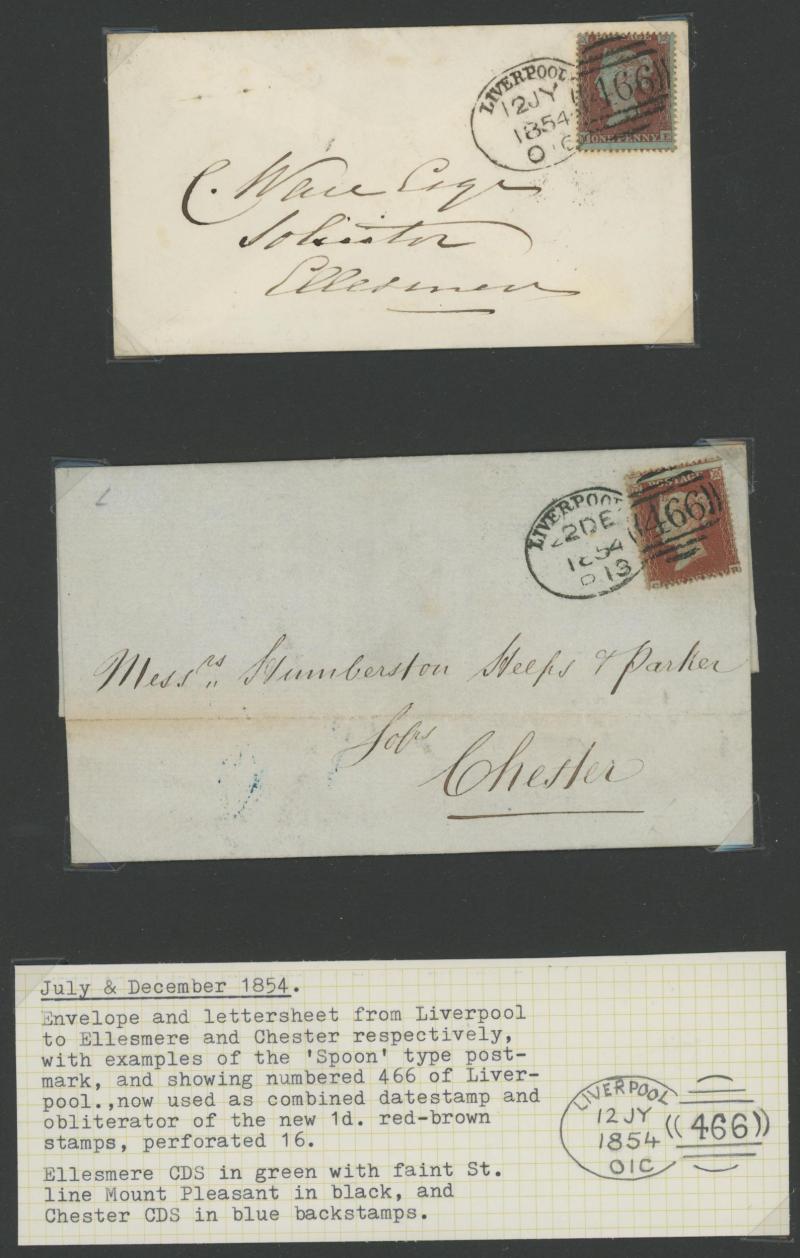 LIVERPOOL
12JY
1854
O1C
466
ONE PENNY
C. Ware Esqr
Solicitor
Ellesmere
LIVERPOOL
22DE
1854
466
POSTAGE
Messrs Humberston Heeps & Parker
Sobrs
Chester
July & December 1854.
Envelope and lettersheet from Liverpool
to Ellesmere and Chester respectively,
with examples of the 'Spoon' type post-
mark, and showing numbered 466 of Liver-
pool.,now used as combined datestamp and
obliterator of the new 1d. red-brown
stamps, perforated 16.
Ellesmere CDS in green with faint St.
line Mount Pleasant in black, and
Chester CDS in blue backstamps.
LIVERPOOL
12 JY
1854
O1C
466